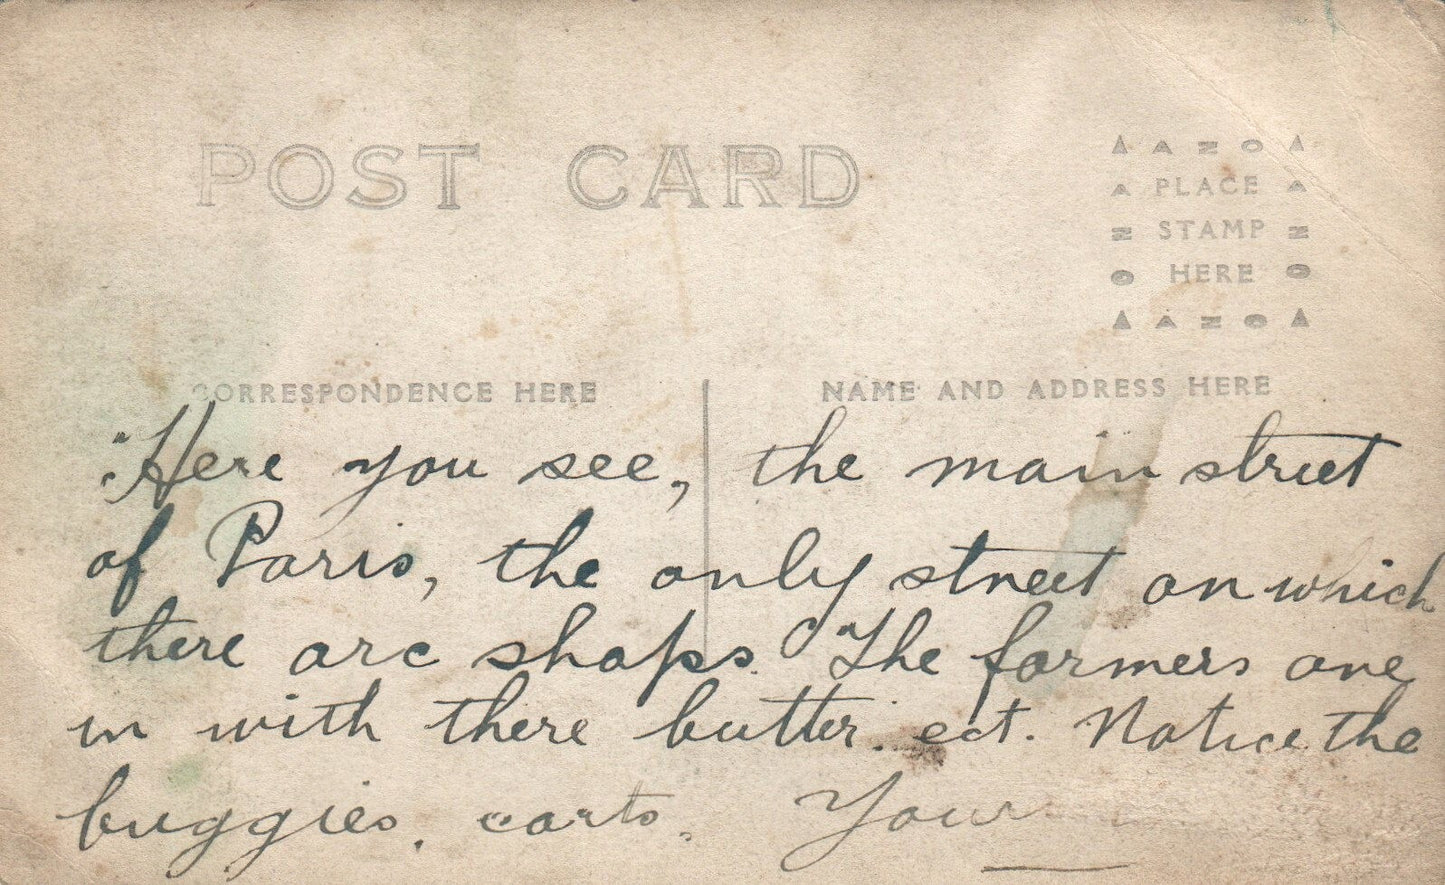 POST CARD
AZO
PLACE
STAMP
HERE
AZO
CORRESPONDENCE HERE
NAME AND ADDRESS HERE
"Here you see, the main street
of Paris, the only street on which
there are shops. The farmers are
in with there butter. ect. Notice the
buggies, carts. Your